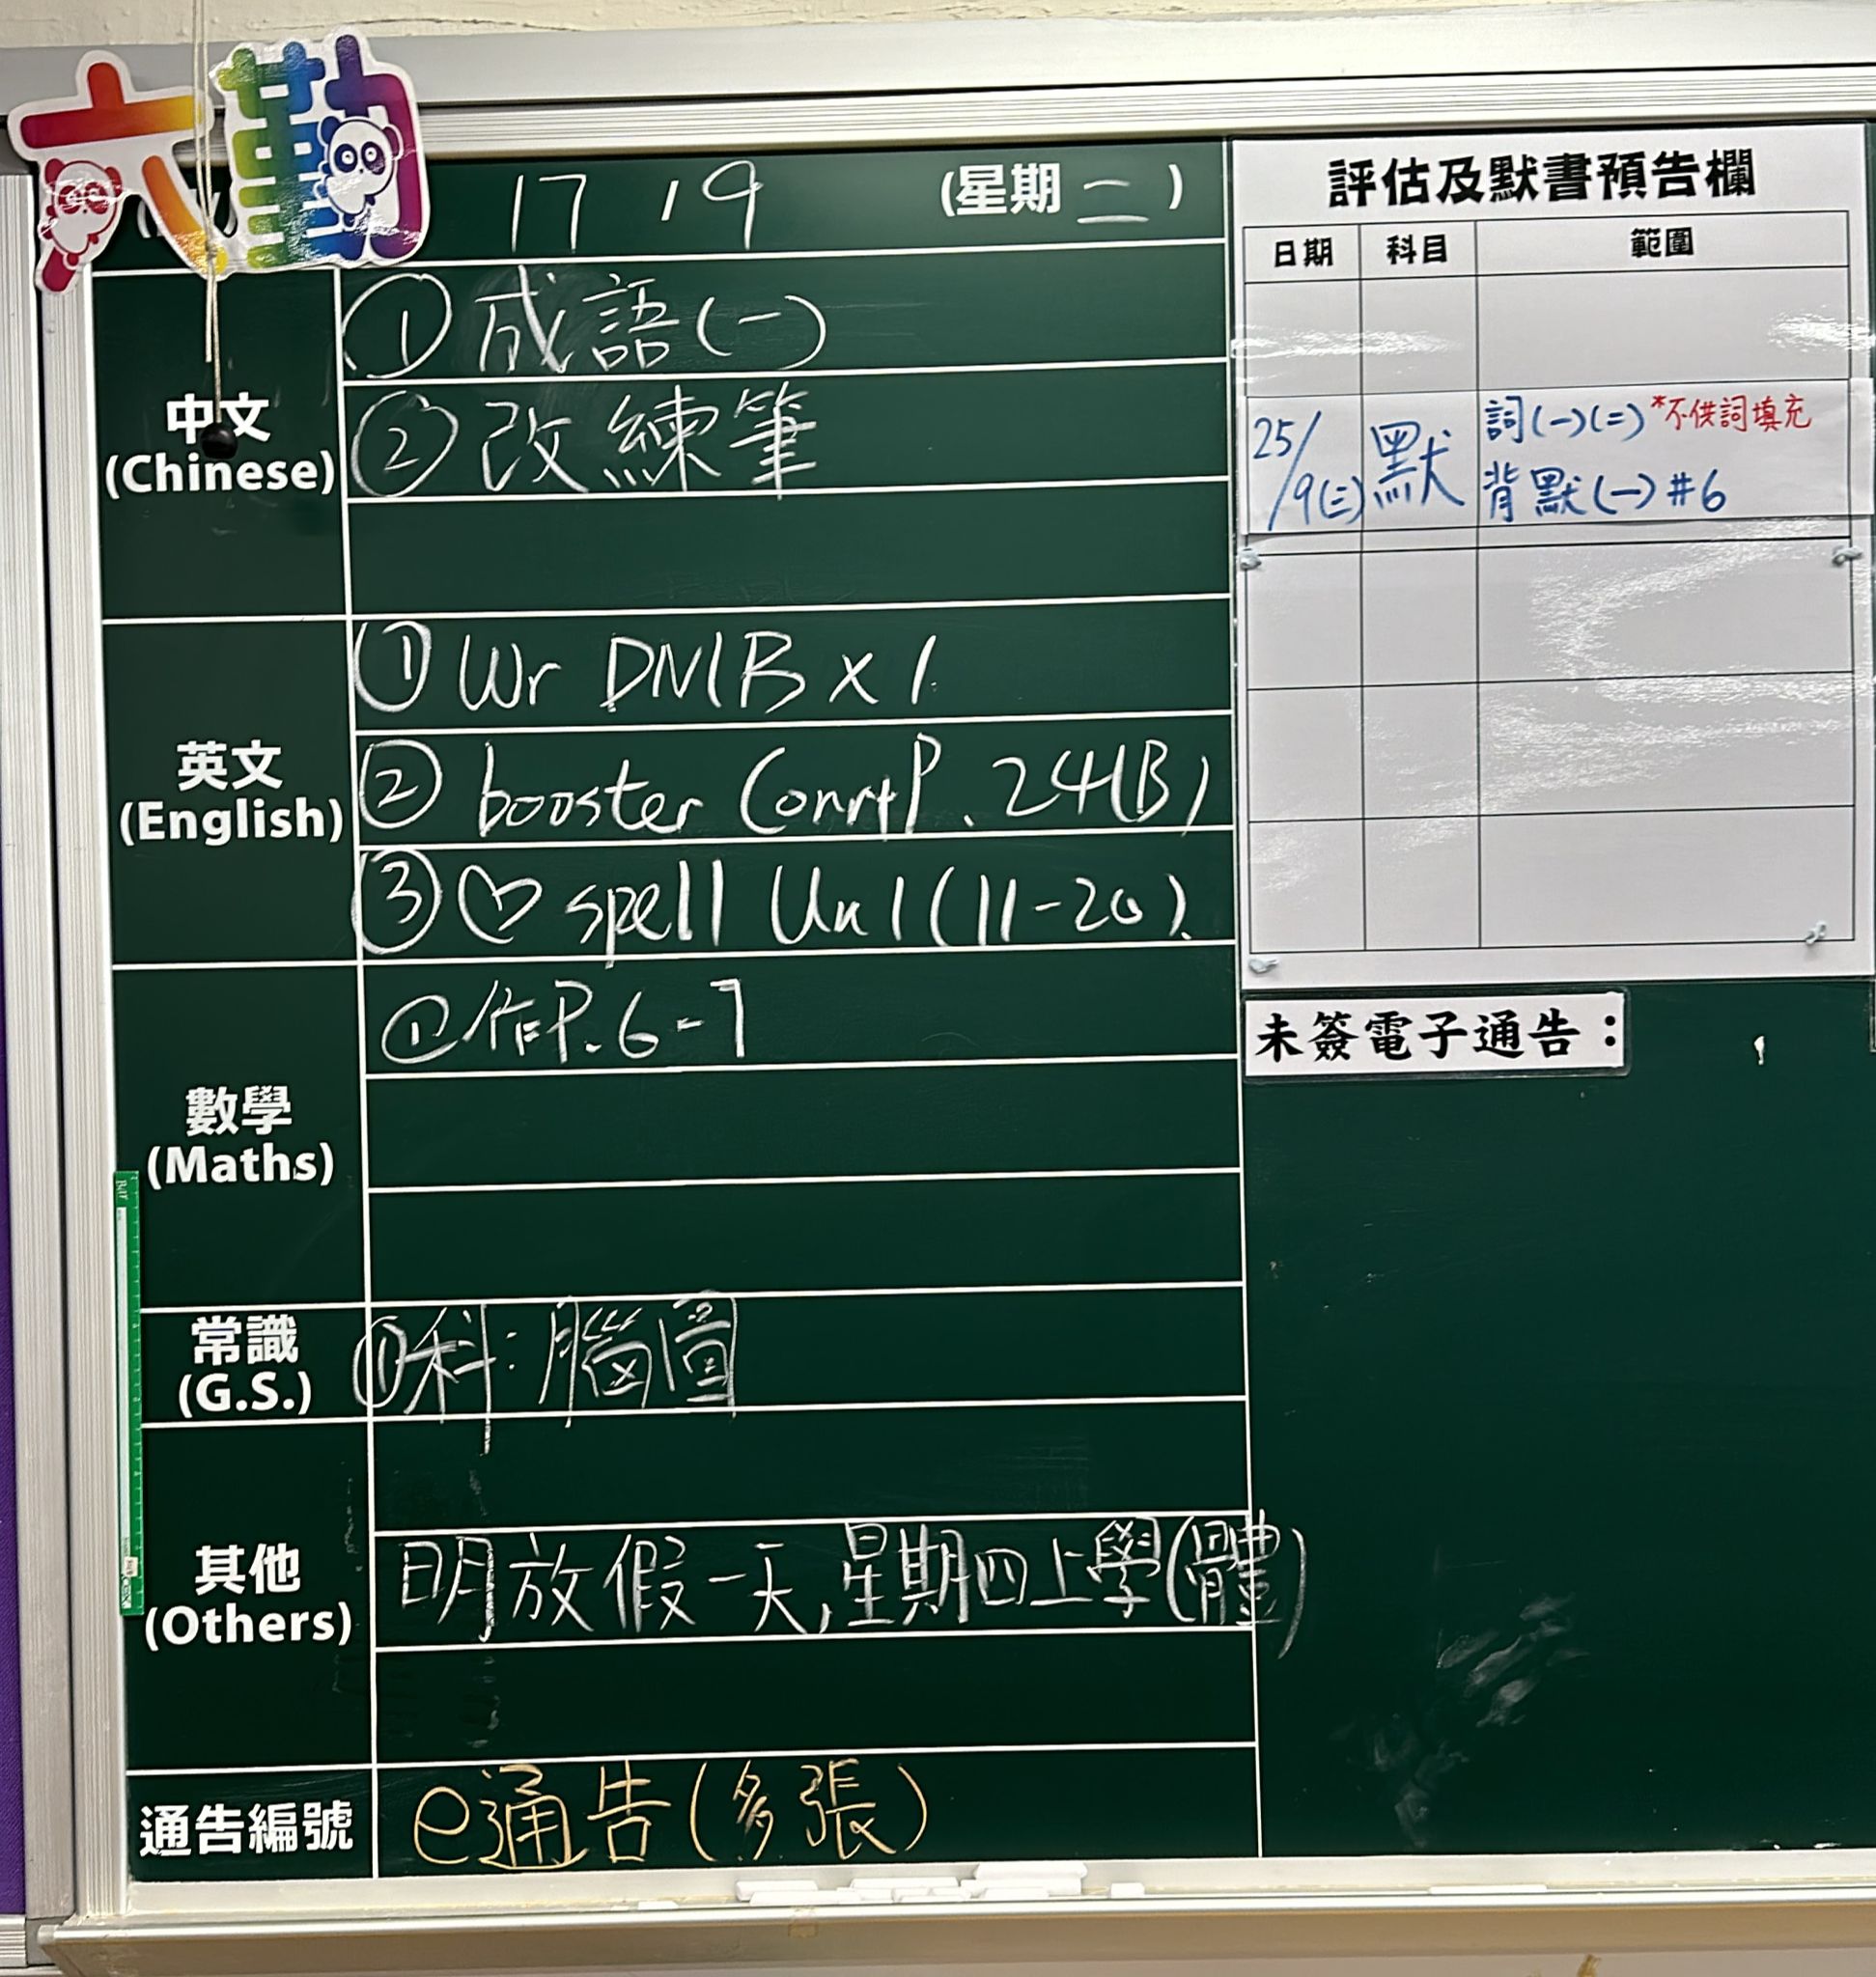 六勤
17 / 9 (星期二)
中文
(Chinese)
① 成語(一)
② 改練筆
英文
(English)
① Wr DN1B x 1
② booster Corr P. 24(B)
③ ♡ spell Un 1 (11-20).
數學
(Maths)
① 作P. 6-7
常識
(G.S.)
① 科: 腦圖
其他
(Others)
明放假一天, 星期四上學(體)
通告編號
e通告(多張)
評估及默書預告欄
日期 科目 範圍
25/9(三) 默 詞(一)(二) *不供詞填充
背默(一) #6
未簽電子通告：